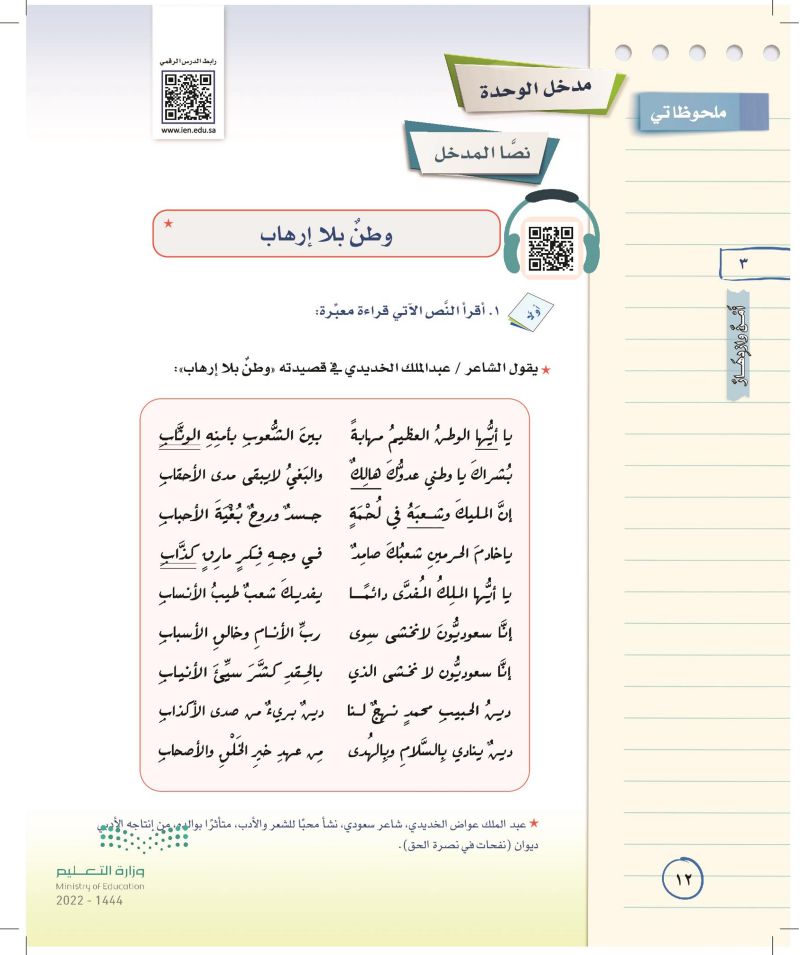 رابط الدرس الرقمي
www.ien.edu.sa
مدخل الوحدة
نصَّا المدخل
ملحوظاتي
وطنٌ بلا إرهاب ★
٣
أمنٌ وازدهارٌ
أولًا
١. أقرأ النَّص الآتي قراءة معبِّرة:
★ يقول الشاعر / عبدالملك الخديدي في قصيدته «وطنٌ بلا إرهاب»:
يا أيُّها الوطنُ العظيمُ مهابةً بينَ الشُّعوبِ بأمنِهِ الوثَّابِ
بُشراكَ يا وطني عدوُّكَ هالِكٌ والبَغيُ لايبقى مدى الأحقابِ
إنَّ المليكَ وشعبَهُ في لُحْمَةٍ جسدٌ وروحٌ بُغْيَةَ الأحبابِ
ياخادمَ الحرمينِ شعبُكَ صامِدٌ في وجهِ فِكرٍ مارقٍ كذَّابِ
يا أيُّها الملِكُ المُفدَّى دائمًا يفديكَ شعبٌ طيبُ الأنسابِ
إنَّا سعوديُّونَ لانخشى سِوى ربِّ الأنامِ وخالقِ الأسبابِ
إنَّا سعوديُّون لا نخشى الذي بالحِقدِ كشَّرَ سيِّئَ الأنيابِ
دينُ الحبيبِ محمدٍ نهجٌ لنا دينٌ بريءٌ من صدى الأكذابِ
دينٌ ينادي بِالسَّلامِ وبِالهُدى مِن عهدِ خيرِ الخَلْقِ والأصحابِ
★ عبد الملك عواض الخديدي، شاعر سعودي، نشأ محبًا للشعر والأدب، متأثرًا بوالده، من إنتاجه الأدبي
ديوان (نفحات في نصرة الحق).
وزارة التعليم
Ministry of Education
2022 - 1444
١٢